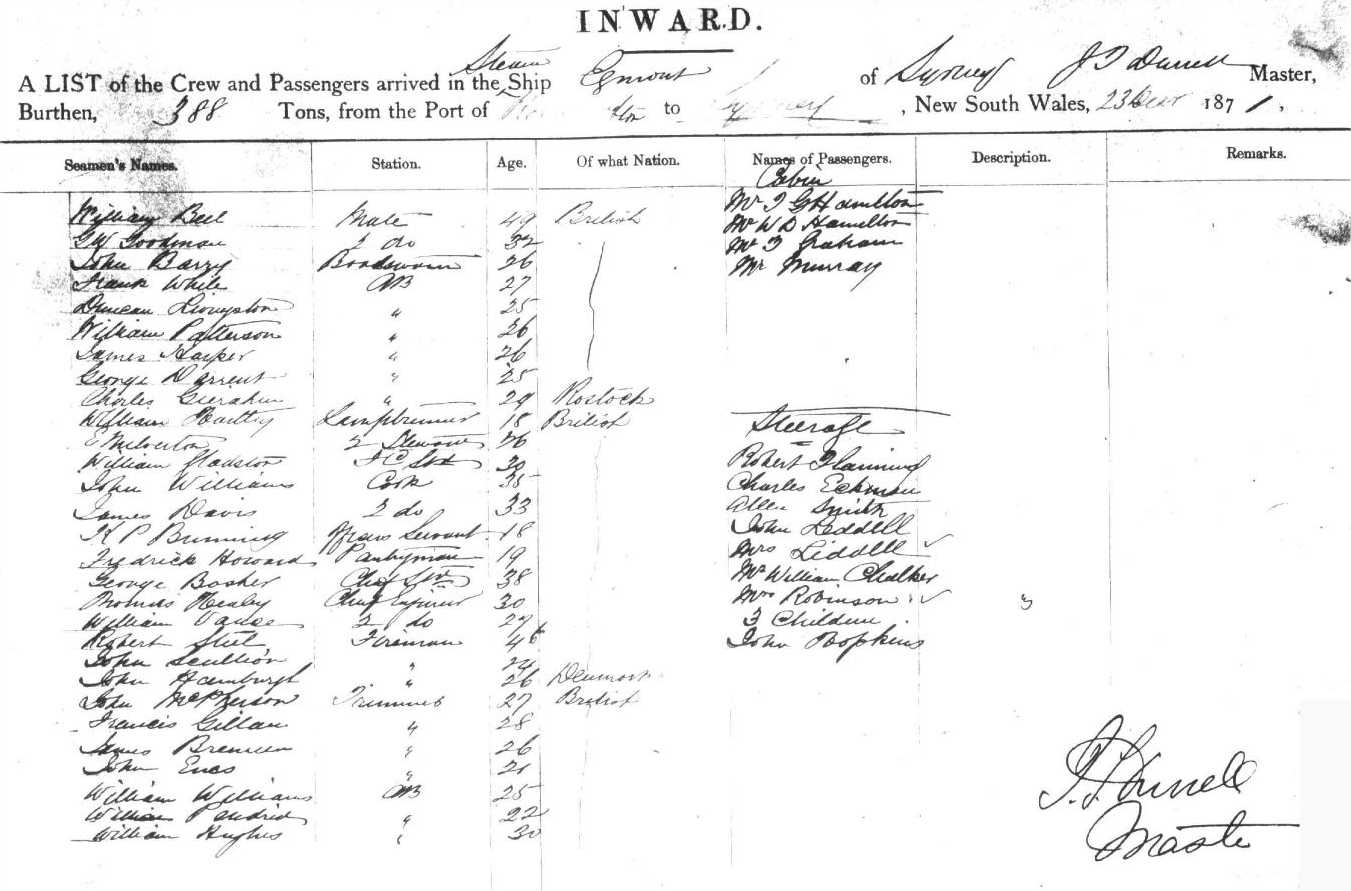 INWARD.
Steam
A LIST of the Crew and Passengers arrived in the Ship Egmont of Sydney Master,
Burthen, 388 Tons, from the Port of to Sydney, New South Wales, 23 1871,
Seamen's Names. Station. Age. Of what Nation. Names of Passengers. Description. Remarks.
Cabin
Mr T G Hamilton
William Bell Mate 49 British Mr W D Hamilton
G W Goodman 2 do 32 Mr T Graham
John Barry Boadswain 26 Mr Murray
Frank White AB 27
Duncan Livingston " 25
William Patterson " 26
James Harper " 26
George " 25
Charles " 29 Rostock
William Lamptrimmer 18 British Steerage
Milverton 2 Steward 26
William Gladston 30 Robert
John Williams Cook 35 Charles Eckman
James Davis 2 do 33 Allen Smith
K P Brunning Servant 18 John Leddell
Fredrick Howard Pantryman 19 Mrs Liddell
George Bosher 38 Mr William Chalker
Thomas Healey Chief 30 Mrs Robinson "
William Vance 2 do 27 3 Children
Robert Steel Fireman 46 John Hopkins
John Scullion " 24
John Hamburgh " 26 Denmark
John McPherson Trimmer 27 British
Francis Gillan " 28
James Brennen " 26
John " 21
William Williams AB 25
William " 22
William Hughes " 30
Master